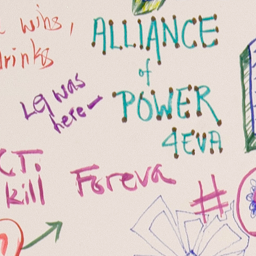 wins,
drinks
ALLIANCE
of
POWER
4EVA
Lq was
here-
CT.
kill
Foreva
#